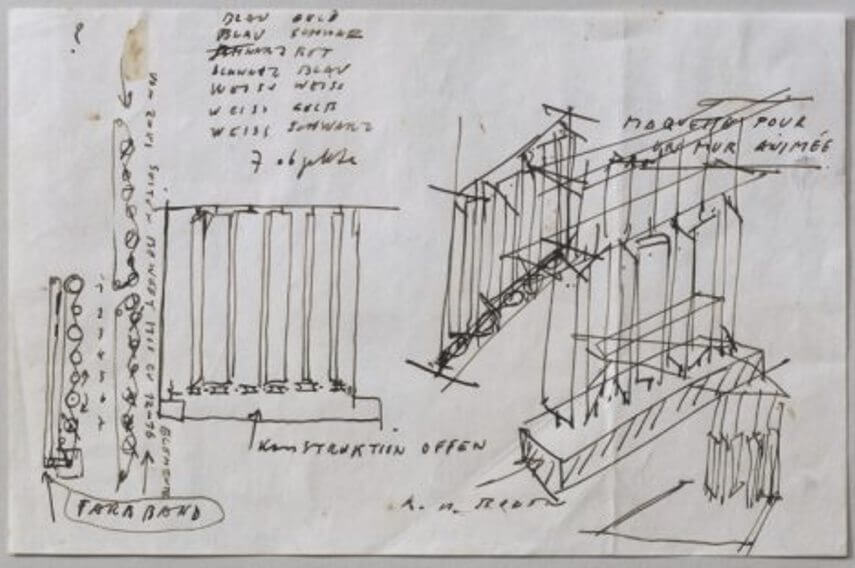 ?
BLAU GELB
BLAU SCHWARZ
SCHWARZ ROT
SCHWARZ BLAU
WEISS WEISS
WEISS GELB
WEISS SCHWARZ
7 objekte
MAQUETTE POUR
UN MUR ANIMÉE
1
2
3
4
5
6
7
VON ZWEI SEITEN BEWEGT
ELEMENTE
KONSTRUKTION OFFEN
FARBBAND